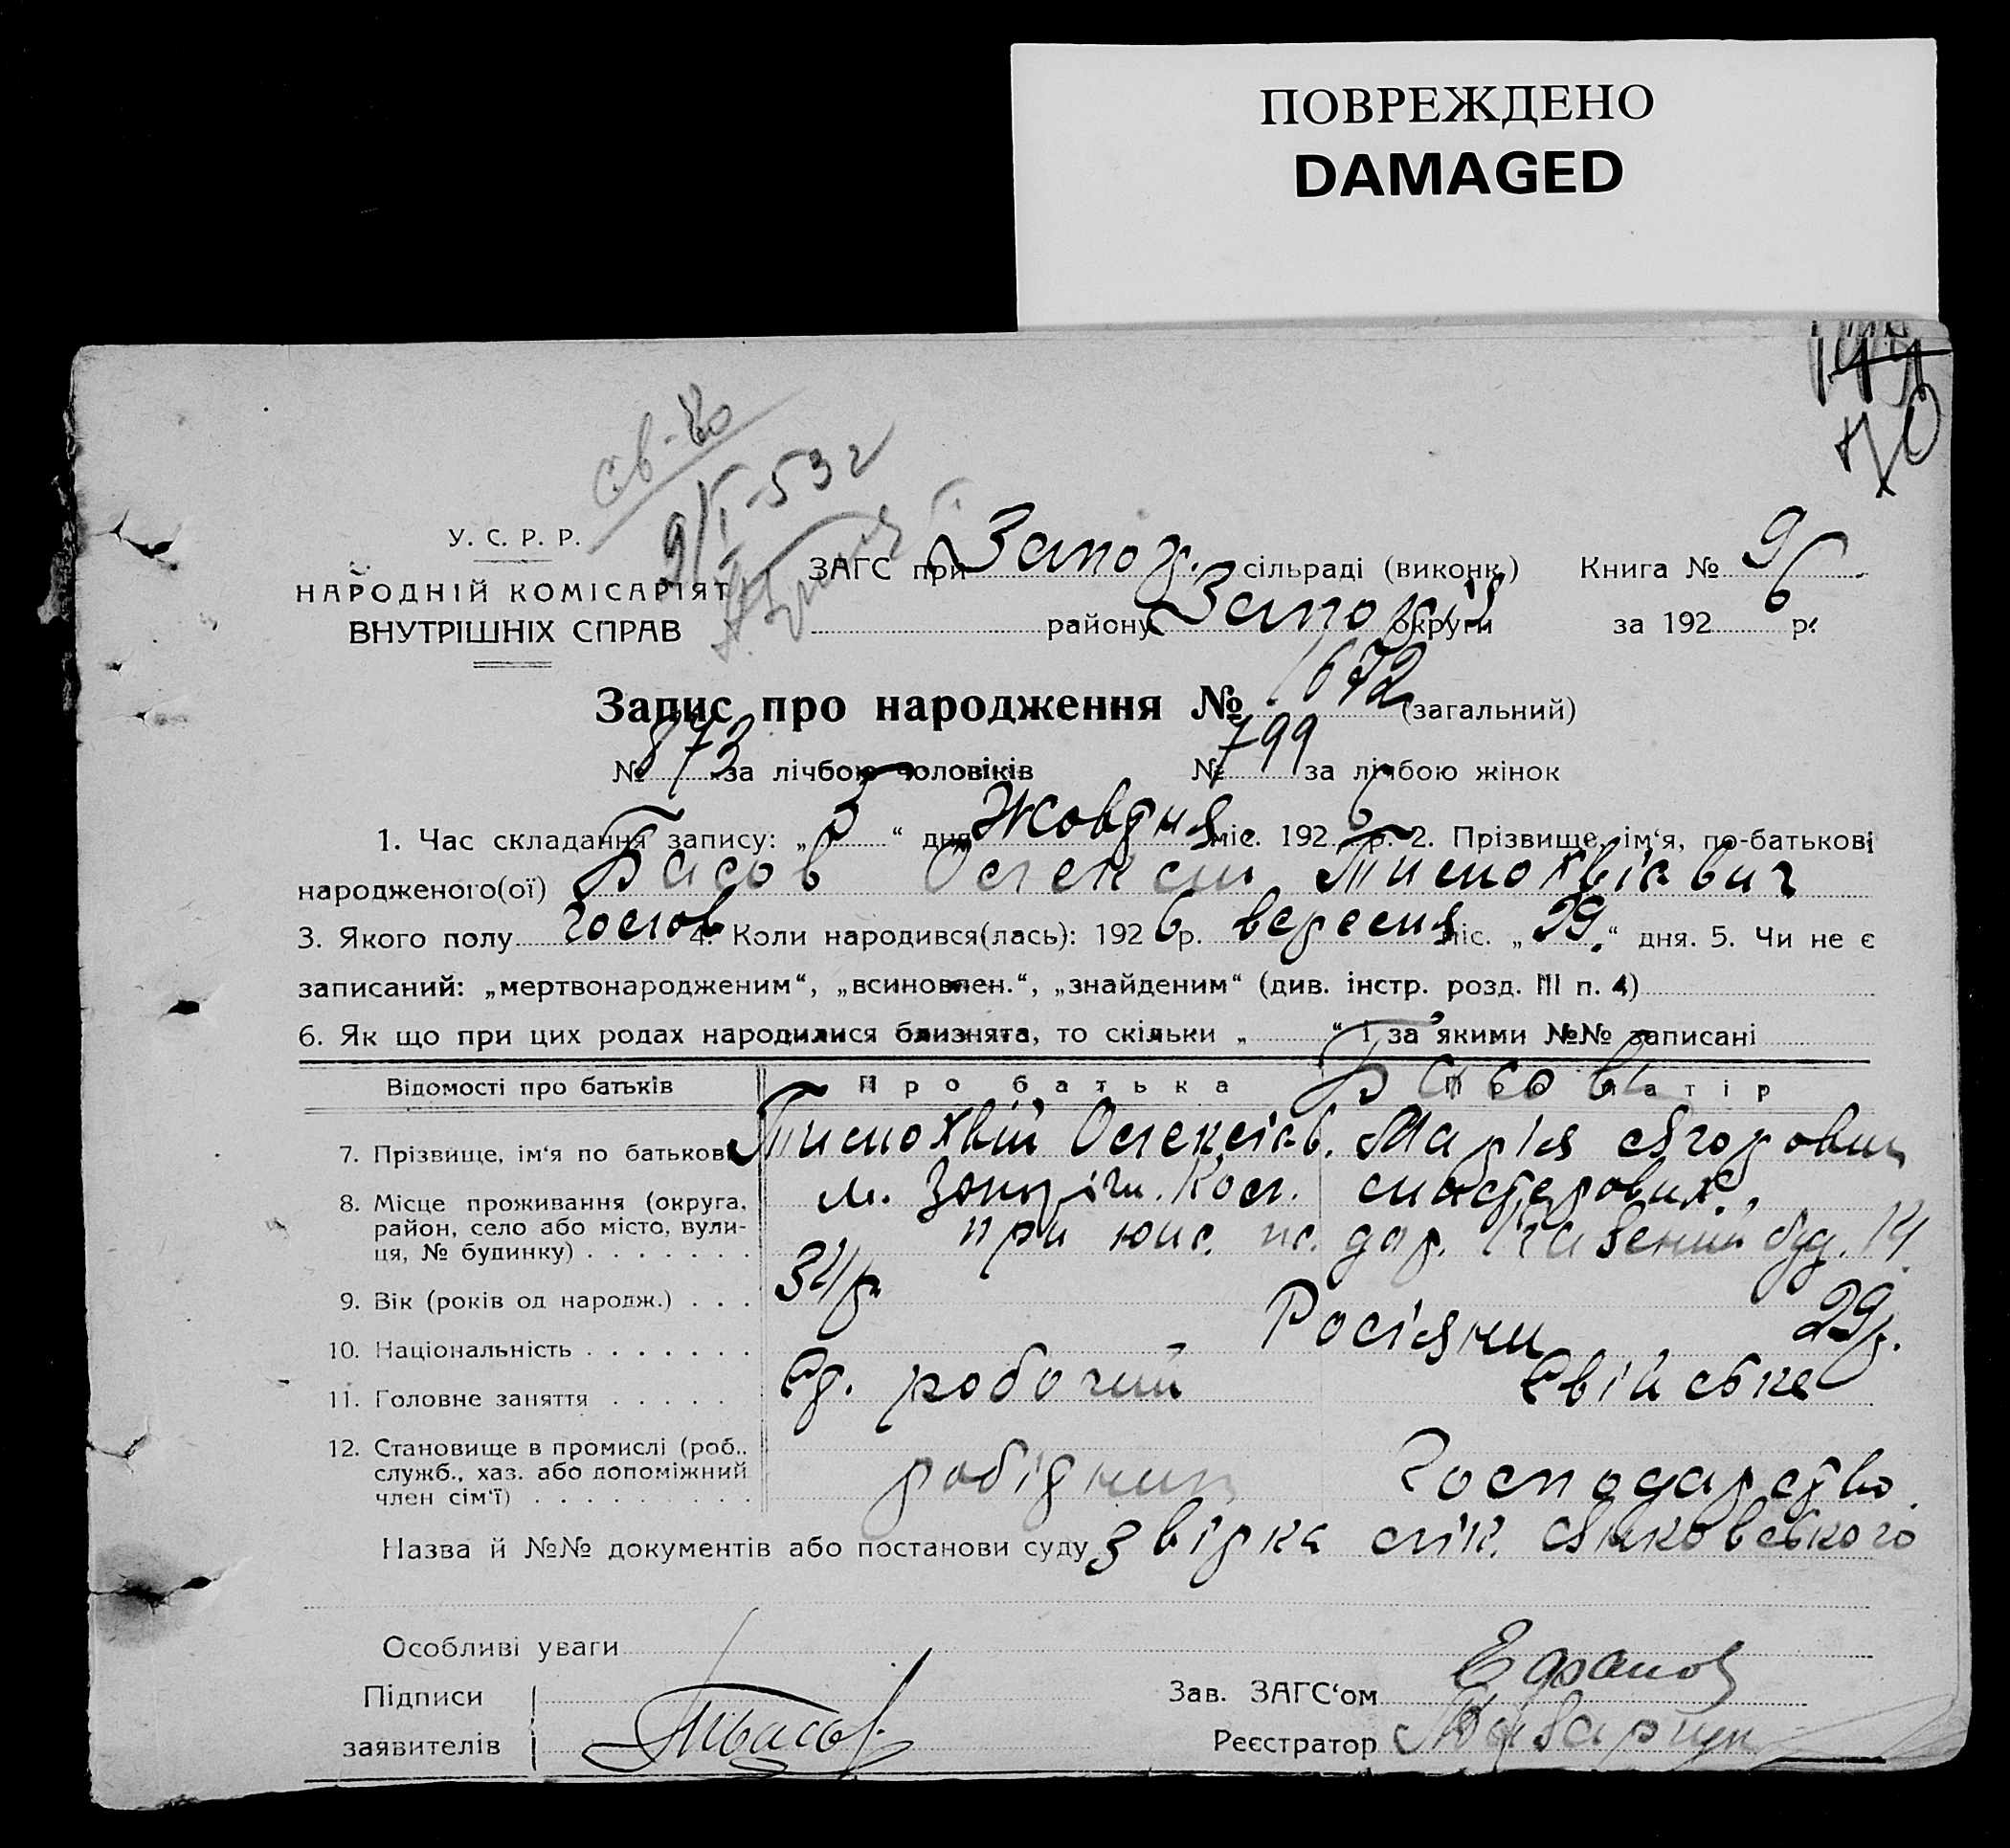 ПОВРЕЖДЕНО
DAMAGED
70
св-во
9/I-53 г
У. С. Р. Р.
НАРОДНІЙ КОМІСАРІЯТ
ВНУТРІШНІХ СПРАВ
ЗАГС при Запор. сільраді (виконк.) Книга № 9
району Запоріз округи за 1926 р.
Запис про народження № 1672 (загальний)
№ 873 за лічбою чоловіків № 799 за лічбою жінок
1. Час складання запису: „5“ дня Жовтня міс. 1926 р. 2. Прізвище, ім‘я, по-батькові
народженого(ої) Басов Олексій Тимохвієвич
3. Якого полу чолов 4. Коли народився(лась): 1926 р. вересня міс. „29.“ дня. 5. Чи не є
записаний: „мертвонародженим“, „всиновлен.“, „знайденим“ (див. інстр. розд. III п. 4)
6. Як що при цих родах народилися близнята, то скільки „ “ і за якими №№ записані
Відомості про батьків Про батька Про матір
Басови
7. Прізвище, ім‘я по батькові Тимохвій Олексієв. Марія Ягоровна
8. Місце проживання (округа, район, село або місто, вулиця, № будинку) м. Запоріж. Кол.
при юж. буд. 14
9. Вік (років од народж.) 34 р. 29 р.
10. Національність Росіяни
11. Головне заняття робочий Свійське
12. Становище в промислі (роб., служб., хаз. або допоміжний член сім‘ї) робідник господарство.
Назва й №№ документів або постанови суду звірка лік. Янковського
Особливі уваги
Підписи заявителів ТБасов
Зав. ЗАГС‘ом
Реєстратор